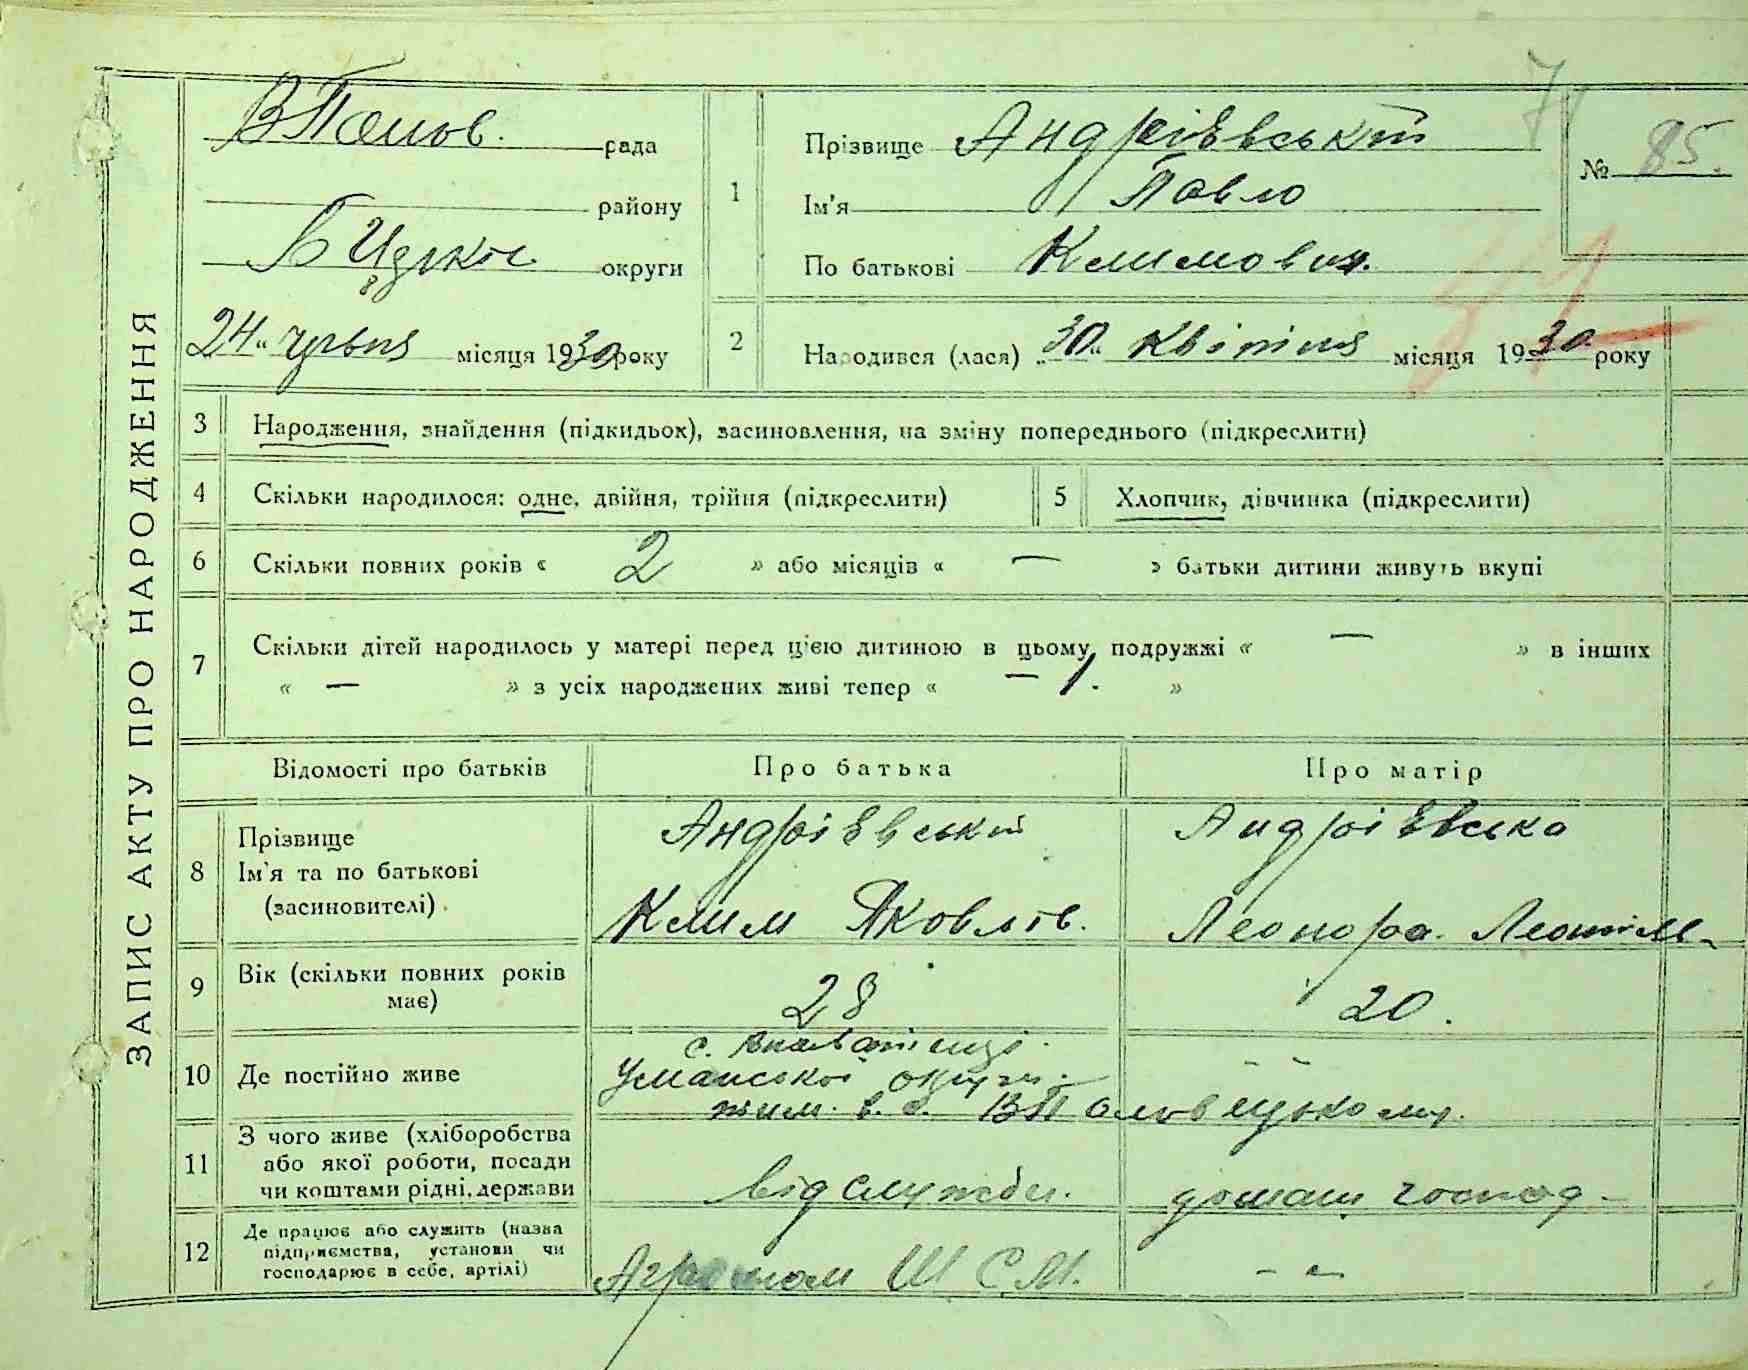 ЗАПИС АКТУ ПРО НАРОДЖЕННЯ
рада
району
округи
24 " червня місяця 1930 року
1
Прізвище Андрієвський
Ім'я Павло
По батькові Климович.
7
№ 85.
2
Народився (лася) „ 30 " квітня місяця 1930 року
3 Народження, знайдення (підкидьок), засиновлення, на зміну попереднього (підкреслити)
4 Скільки народилося: одне, двійня, трійня (підкреслити)
5 Хлопчик, дівчинка (підкреслити)
6 Скільки повних років « 2 » або місяців « — » батьки дитини живуть вкупі
7 Скільки дітей народилось у матері перед цією дитиною в цьому подружжі « — » в інших
« — » з усіх народжених живі тепер « – 1. »
Відомості про батьків
Про батька
Про матір
8 Прізвище
Ім'я та по батькові
(засиновителі)
Андрієвський
Клим Яковлев.
Андрієвська
Леонора
9 Вік (скільки повних років
має)
28
20.
10 Де постійно живе
с.
Уманської округи
тим. в. с.
11 З чого живе (хліборобства
або якої роботи, посади
чи коштами рідні, держави
від служби.
домаш господ -
12 Де працює або служить (назва
підприємства, установи чи
господарює в себе, артілі)
Агроном Ш С.М.
- " -